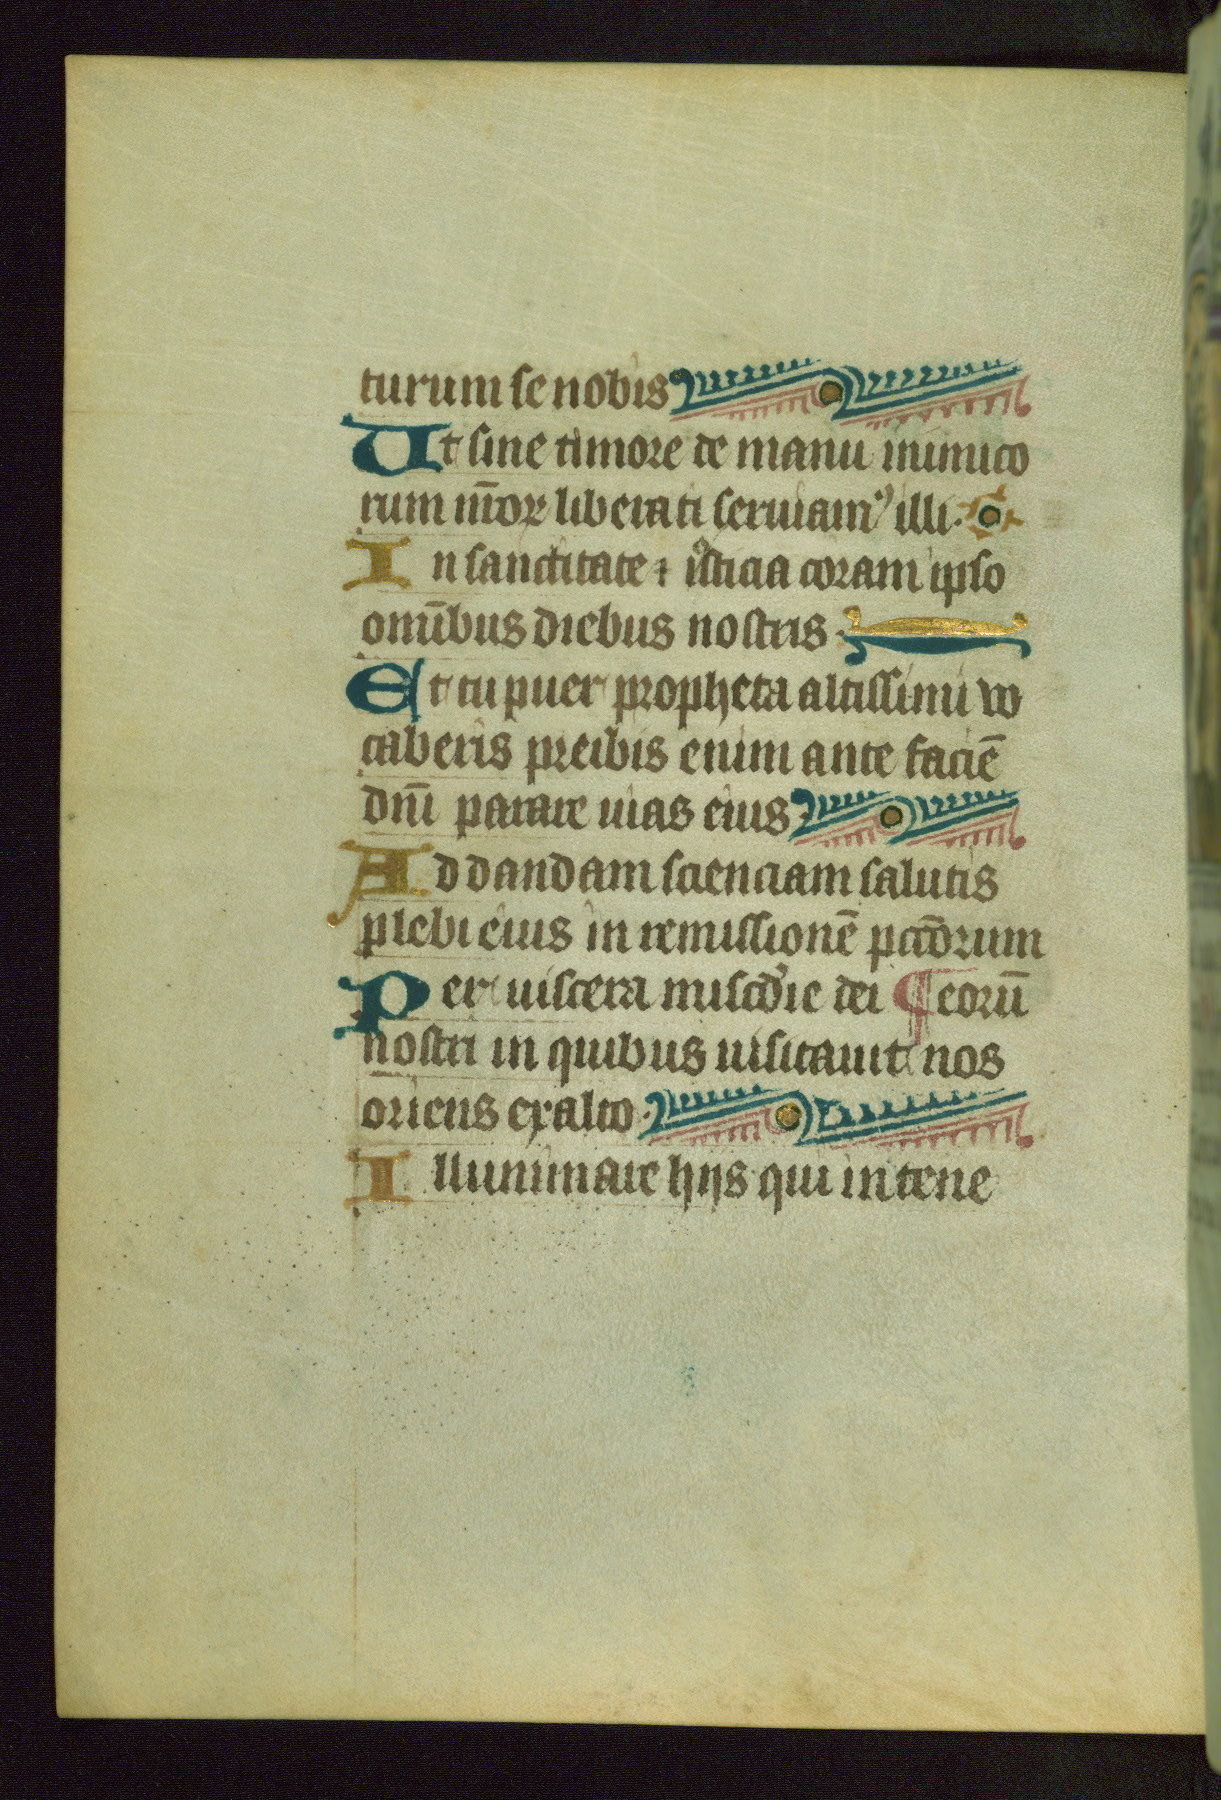 turum se nobis
Ut sine timore de manu inimico
rum nr̄oꝝ liberati seruiamꝰ illi.
In sanctitate ⁊ iusticia coram ipso
omībus diebus nostris.
Et tu puer propheta altissimi vo
caberis preibis enim ante faciē
dnī parare uias eius
Ad dandam scienciam salutis
plebi eius in remissionē pcc̄orum
Per uiscera miscd̄ie dei ¶ eorū
nostri in quibus uisitauit nos
oriens ex alto.
Illuminare hijs qui in tene